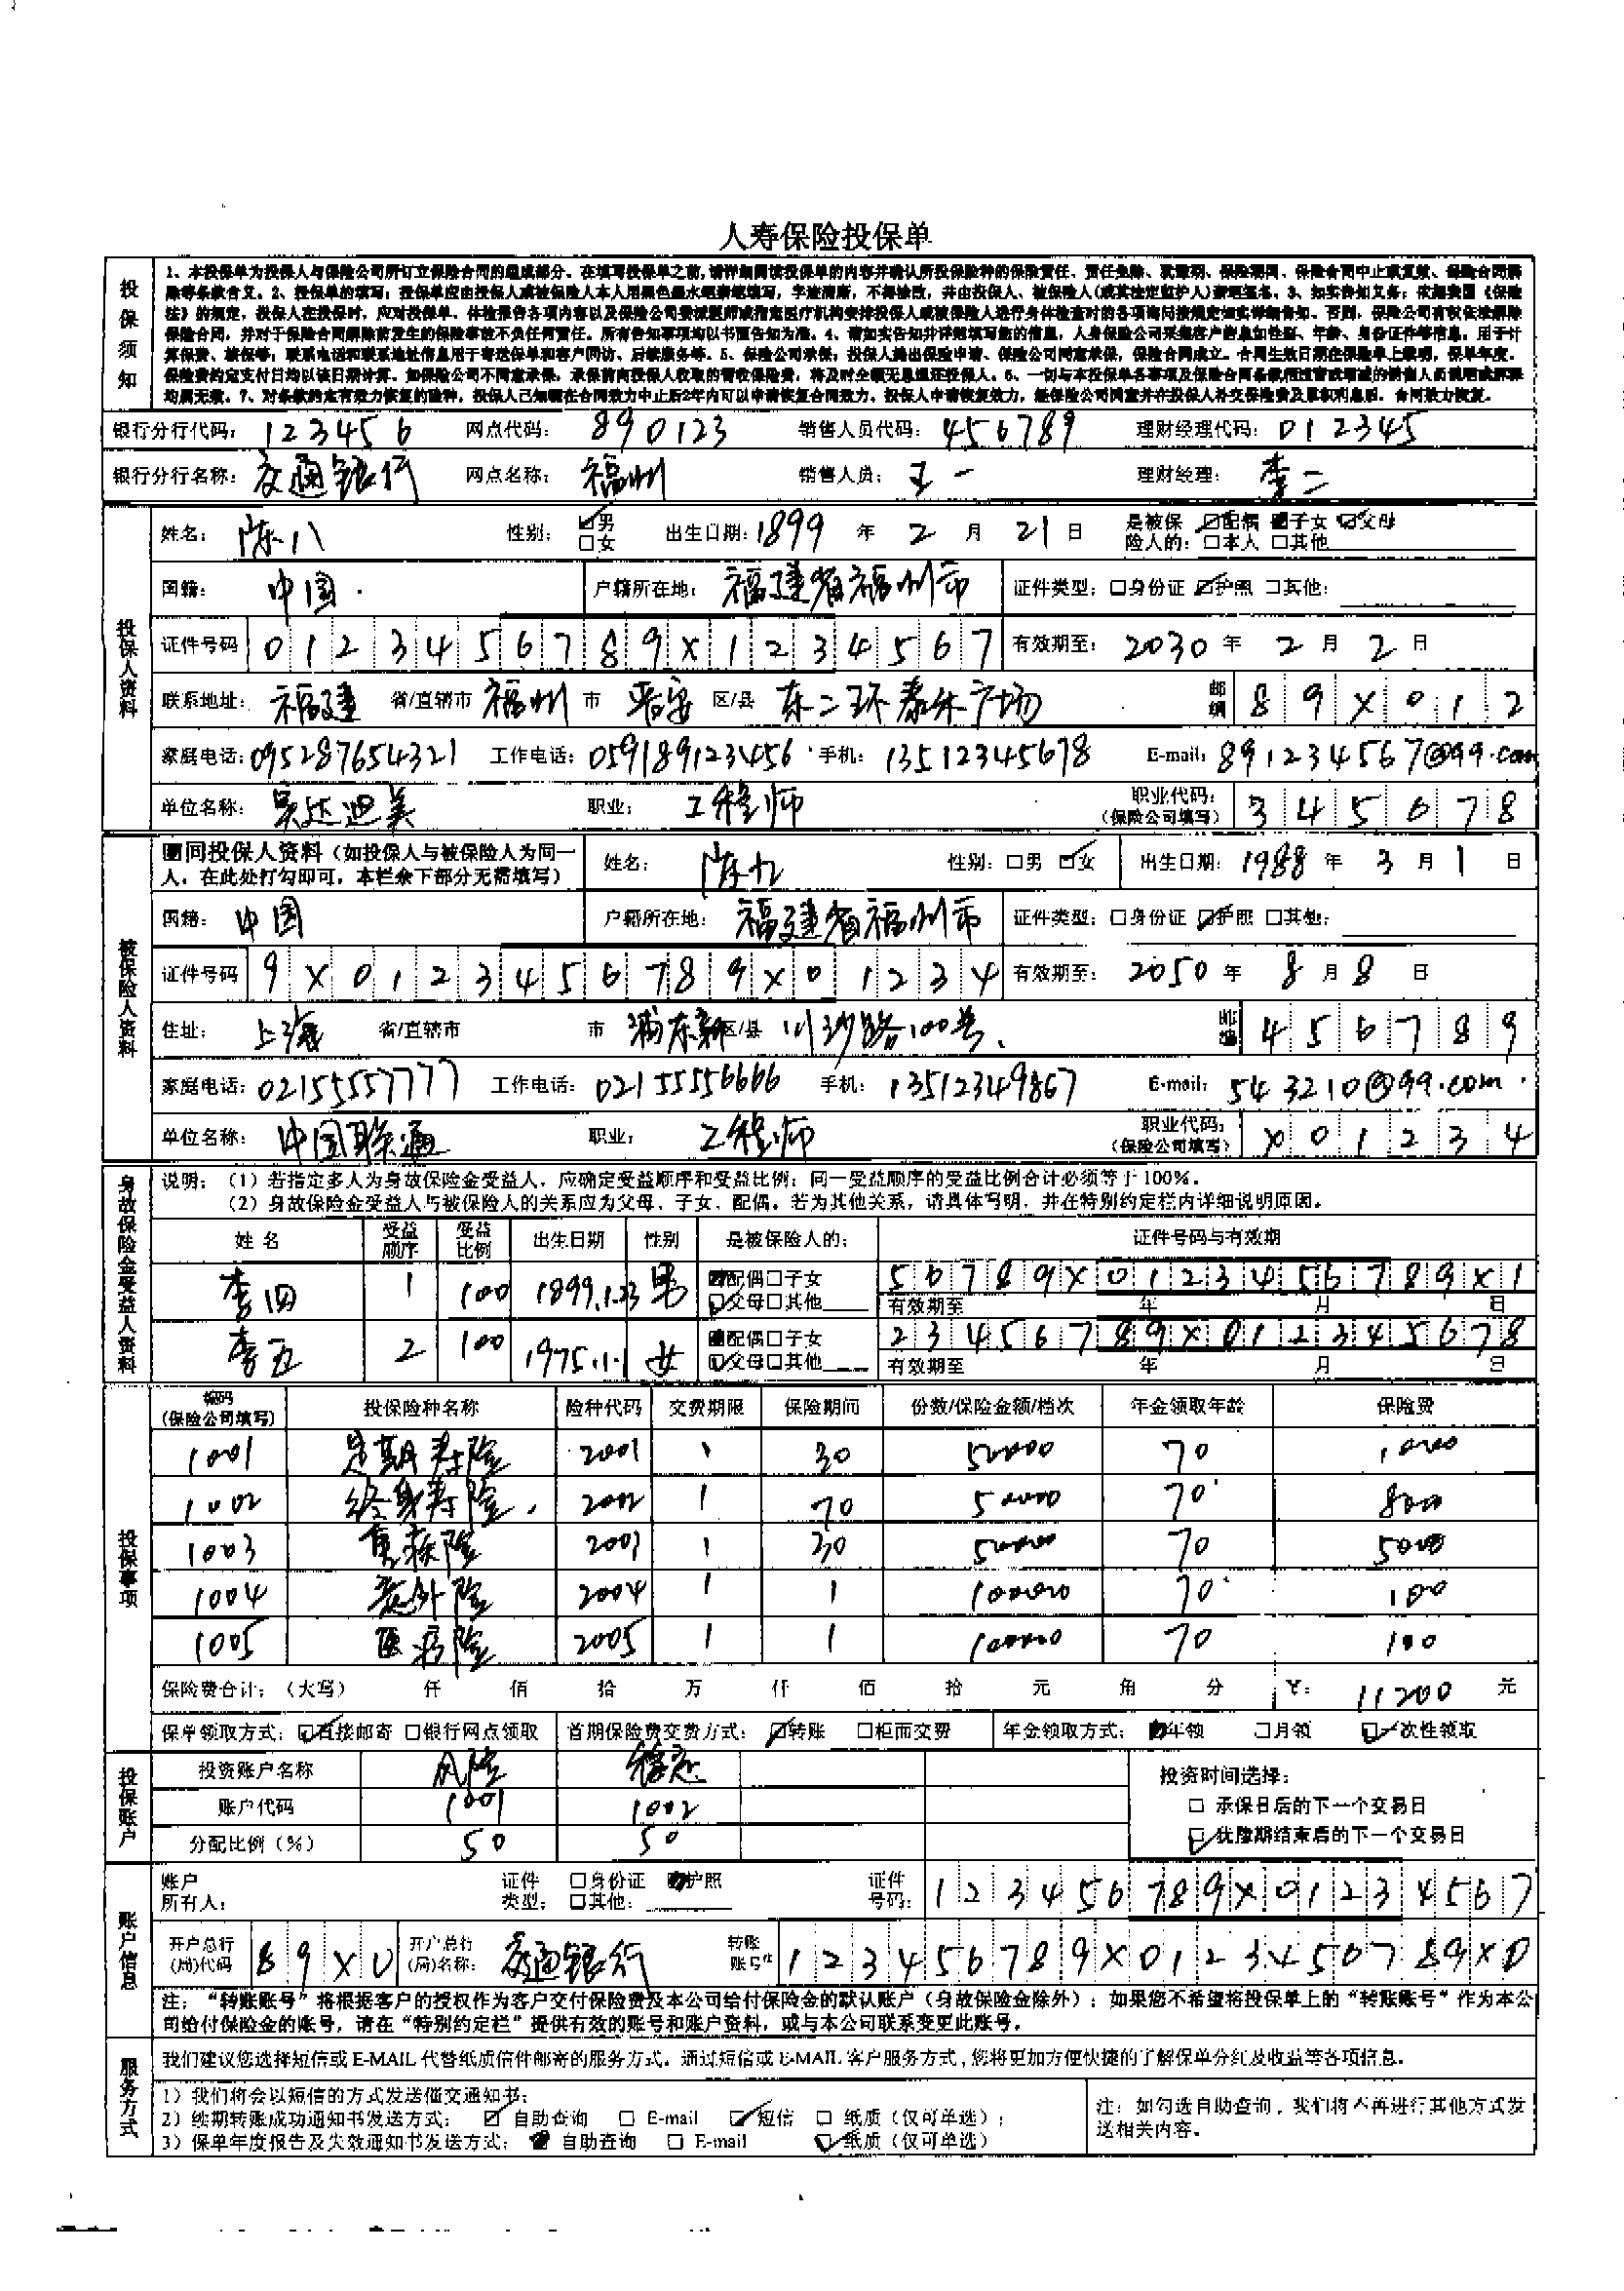 人寿保险投保单
投保须知
1、本投保单为投保人与保险公司所订立保险合同的组成部分。在填写投保单之前,请详细阅读投保单的内容并确认所投保险种的保险责任、责任免除、犹豫期、保险期间、保险合同中止或复效、保险合同解
除等条款含义。2、投保单的填写:投保单应由投保人或被保险人本人用黑色墨水笔亲笔填写,字迹清晰,不得涂改,并由投保人、被保险人(或其法定监护人)亲笔签名。3、如实告知义务:依据我国《保险
法》的规定,投保人在投保时,应对投保单、体检报告各项内容以及保险公司委派医师或指定医疗机构安排投保人或被保险人进行身体检查时的各项询问按规定如实详细告知。否则,保险公司有权依法解除
保险合同,并对于保险合同解除前发生的保险事故不负任何责任。所有告知事项均以书面告知为准。4、请如实告知并详细填写您的信息,人身保险公司采集客户信息如性别、年龄、身份证件等信息,用于计
算保费、核保等;联系电话和联系地址信息用于寄送保单和客户回访、后续服务等。5、保险公司承保:投保人提出保险申请、保险公司同意承保,保险合同成立。合同生效日期在保险单上载明,保单年度、
保险费约定支付日均以该日期计算。如保险公司不同意承保,承保前向投保人收取的暂收保险费,将及时全额无息退还投保人。6、一切与本投保单各事项及保险合同条款相违背或增减的销售人员说明或解释
均属无效。7、对条款约定有效力恢复的险种,投保人已知晓在合同效力中止后2年内可以申请恢复合同效力。投保人申请恢复效力,经保险公司同意并在投保人补交保险费及累积利息后,合同效力恢复。
银行分行代码: 123456 网点代码: 890123 销售人员代码: 456789 理财经理代码: 012345
银行分行名称: 交通银行 网点名称: 福州 销售人员: 王一 理财经理: 李二
投保人资料
姓名: 陈八 性别: 男 女 出生日期: 1899 年 2 月 21 日 是被保险人的: 配偶 子女 父母 本人 其他
国籍: 中国 户籍所在地: 福建省福州市 证件类型: 身份证 护照 其他:
证件号码 0123456789X1234567 有效期至: 2030 年 2 月 2 日
联系地址: 福建 省/直辖市 福州 市 晋安 区/县 东二环泰禾广场 邮编 89X012
家庭电话: 095287654321 工作电话: 059189123456 手机: 13512345678 E-mail: 891234567@99.com
单位名称: 吴达迪美 职业: 工程师 职业代码: (保险公司填写) 345678
被保险人资料
同投保人资料(如投保人与被保险人为同一人,在此处打勾即可,本栏余下部分无需填写) 姓名: 陈九 性别: 男 女 出生日期: 1988 年 3 月 1 日
国籍: 中国 户籍所在地: 福建省福州市 证件类型: 身份证 护照 其他:
证件号码 9X0123456789X01234 有效期至: 2050 年 8 月 8 日
住址: 上海 省/直辖市 市 浦东新 区/县 川沙路100号 邮编 456789
家庭电话: 02155557777 工作电话: 02155556666 手机: 13512349867 E-mail: 543210@99.com
单位名称: 中国联通 职业: 工程师 职业代码: (保险公司填写) X01234
身故保险金受益人资料
说明:(1)若指定多人为身故保险金受益人,应确定受益顺序和受益比例;同一受益顺序的受益比例合计必须等于100%。
(2)身故保险金受益人与被保险人的关系应为父母、子女、配偶。若为其他关系,请具体写明,并在特别约定栏内详细说明原因。
姓名 受益顺序 受益比例 出生日期 性别 是被保险人的: 证件号码与有效期
李四 1 100 1899.1.23 男 配偶 子女 父母 其他 56789X0123456789X1
有效期至 年 月 日
李五 2 100 1975.1.1 女 配偶 子女 父母 其他 23456789X012345678
有效期至 年 月 日
投保事项
编码(保险公司填写) 投保险种名称 险种代码 交费期限 保险期间 份数/保险金额/档次 年金领取年龄 保险费
1001 定期寿险 2001 1 30 50000 70
1002 终身寿险 2002 1 70 50000 70 8000
1003 重疾险 2003 1 30 50000 70 5000
1004 意外险 2004 1 1 100000 70 100
1005 医疗险 2005 1 1 100000 70 100
保险费合计:(大写) 仟 佰 拾 万 仟 佰 拾 元 角 分 ¥: 11200 元
保单领取方式: 直接邮寄 银行网点领取 首期保险费交费方式: 转账 柜面交费 年金领取方式: 年领 月领 一次性领取
投保账户
投资账户名称 风险 稳定 投资时间选择:
账户代码 1001 1002 承保日后的下一个交易日
分配比例(%) 50 50 犹豫期结束后的下一个交易日
账户信息
账户所有人: 证件类型: 身份证 护照 其他: 证件号码: 123456789X01234567
开户总行(局)代码 89X0 开户总行(局)名称: 交通银行 转账账号 123456789X0123456789X0
注:“转账账号”将根据客户的授权作为客户交付保险费及本公司给付保险金的默认账户(身故保险金除外);如果您不希望将投保单上的“转账账号”作为本公
司给付保险金的账号,请在“特别约定栏”提供有效的账号和账户资料,或与本公司联系变更此账号。
服务方式
我们建议您选择短信或 E-MAIL 代替纸质信件邮寄的服务方式。通过短信或 E-MAIL 客户服务方式,您将更加方便快捷的了解保单分红及收益等各项信息。
1)我们将会以短信的方式发送催交通知书;
2)续期转账成功通知书发送方式: 自助查询 E-mail 短信 纸质(仅可单选);
3)保单年度报告及失效通知书发送方式: 自助查询 E-mail 纸质(仅可单选)
注:如勾选自助查询,我们将不再进行其他方式发
送相关内容。